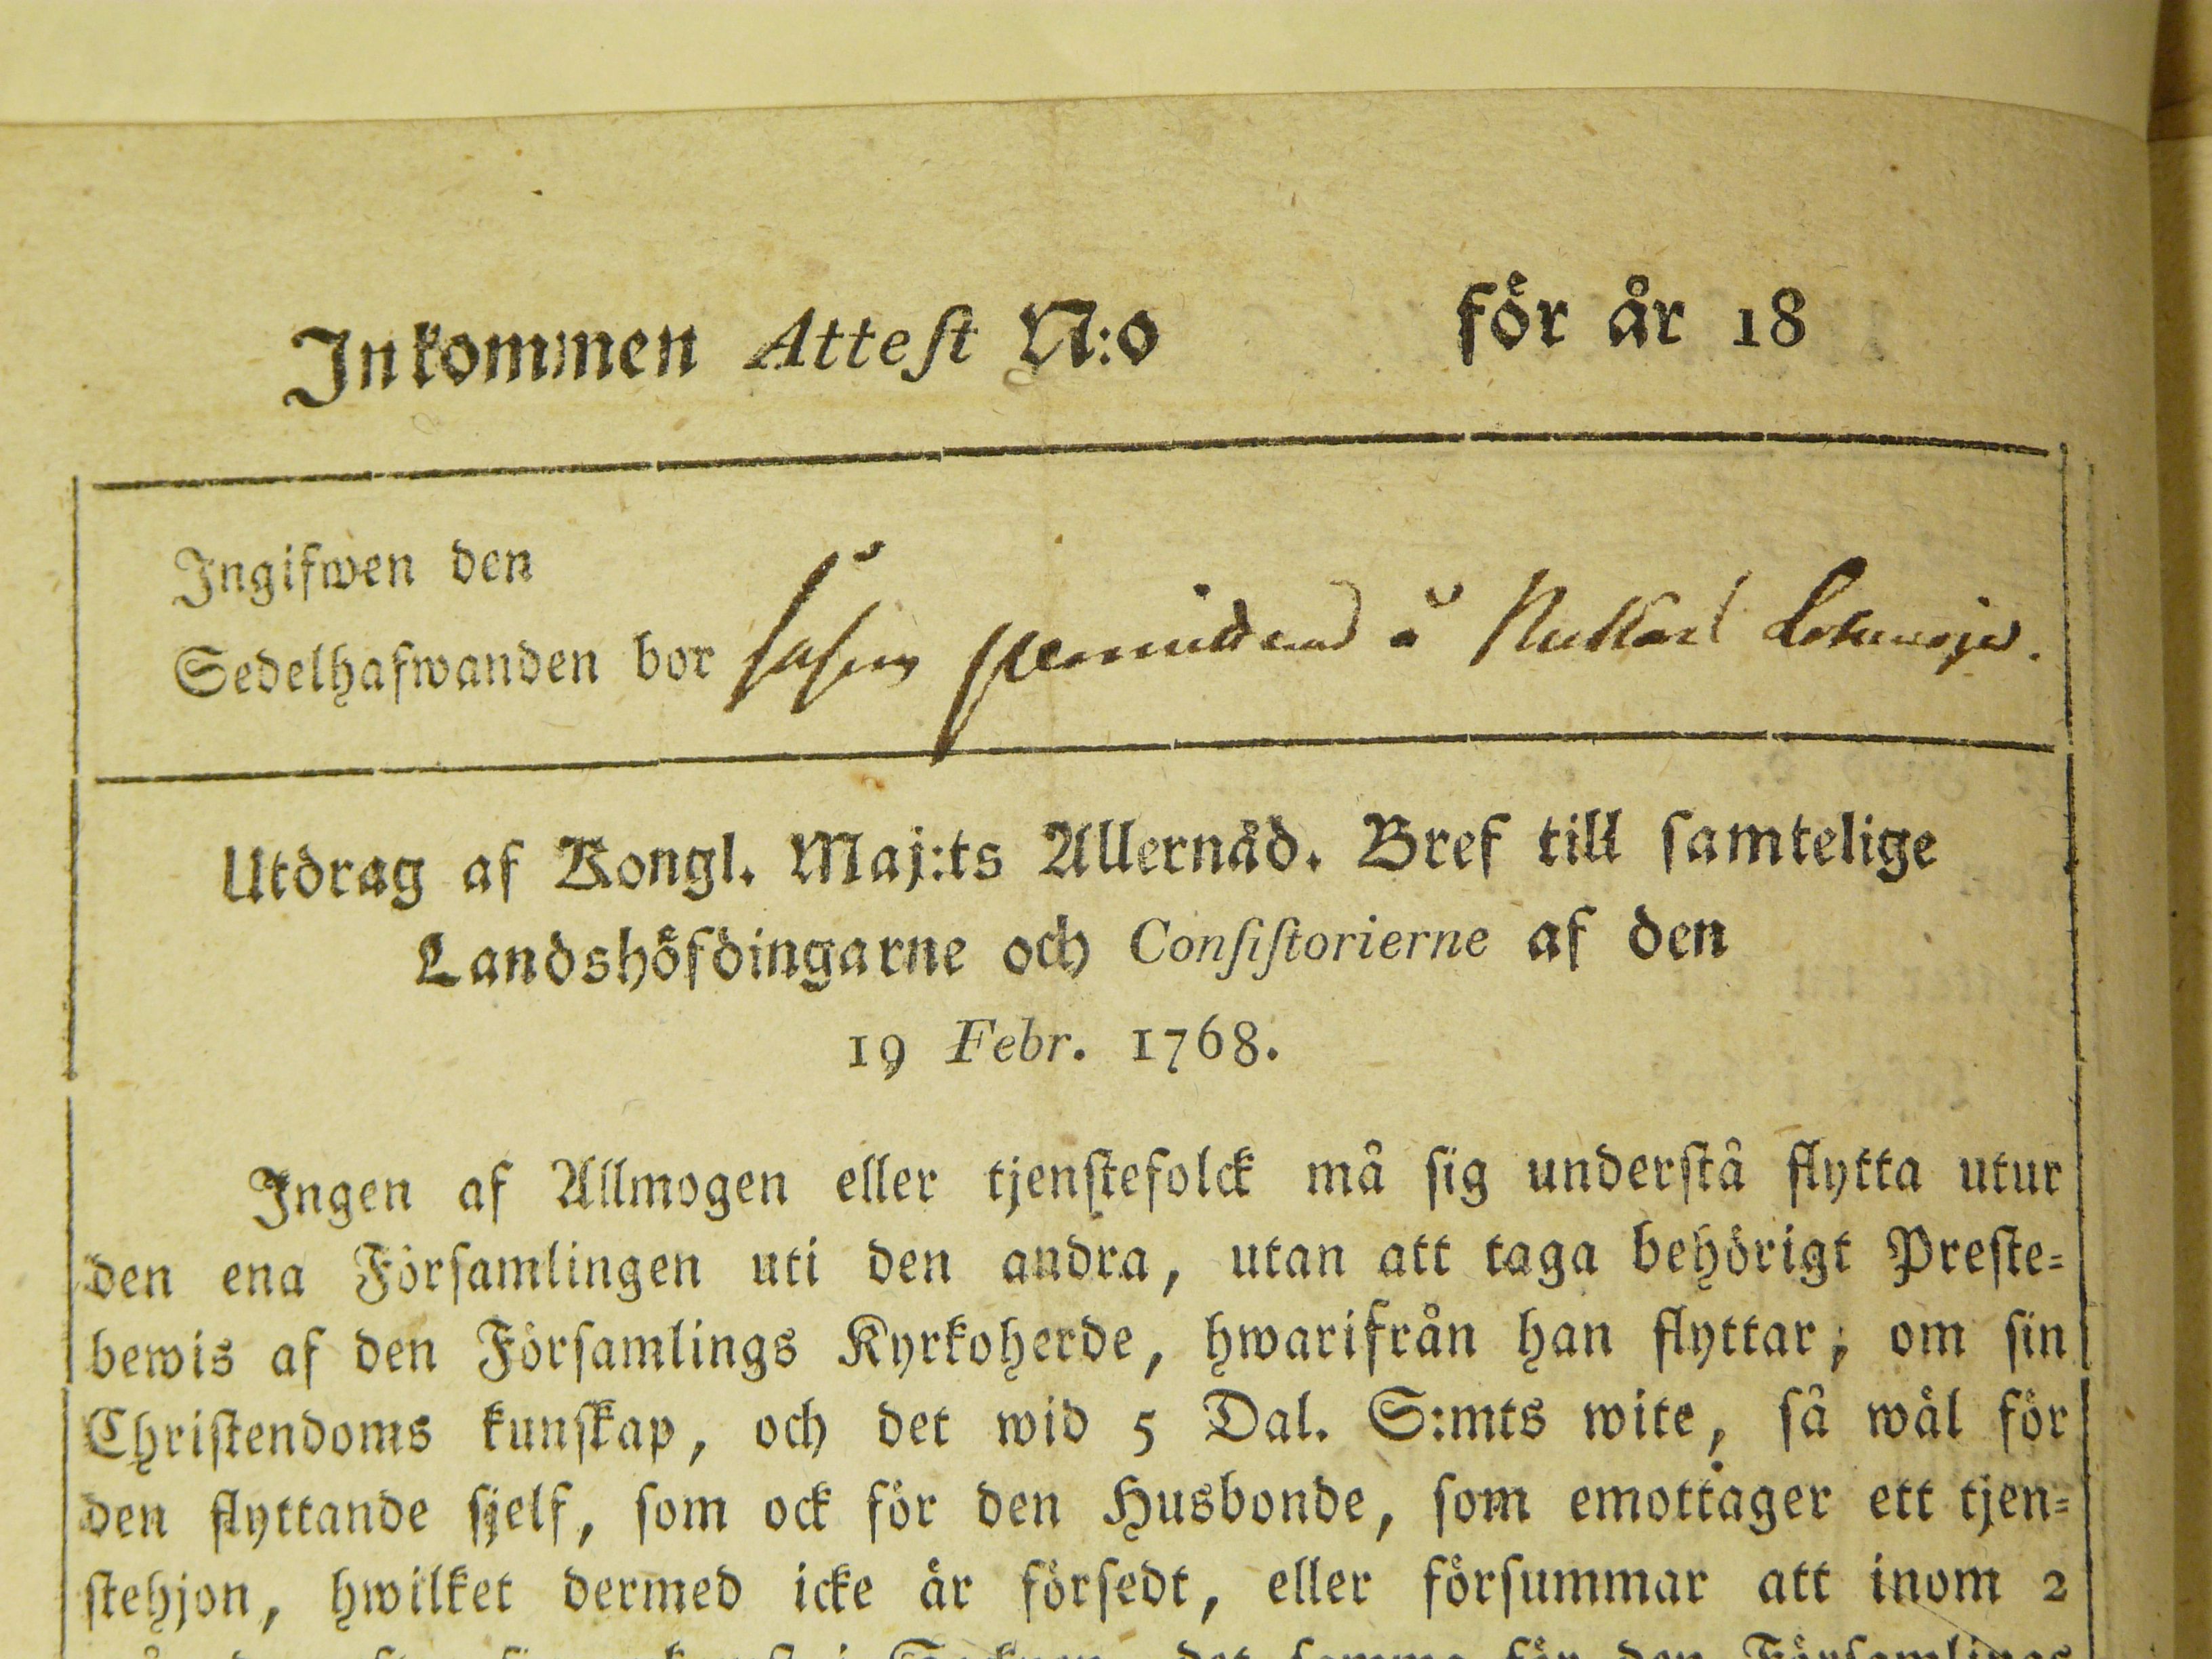 Inkommen Atteſt N:o för år 18
Ingifwen den
Sedelhafwanden bor å
Utdrag af Kongl. Maj:ts Allernåd. Bref till ſamtelige
Landshöfdingarne och Conſiſtorierne af den
19 Febr. 1768.
Ingen af Allmogen eller tjenſtefolck må ſig underſtå flytta utur
den ena Förſamlingen uti den andra, utan att taga behörigt Preſte-
bewis af den Förſamlings Kyrkoherde, hwarifrån han flyttar; om ſin
Chriſtendoms kunſkap, och det wid 5 Dal. S:mts wite, ſå wäl för
den flyttande ſjelf, ſom ock för den Husbonde, ſom emottager ett tjen-
ſtehjon, hwilket dermed icke är förſedt, eller förſummar att inom 2